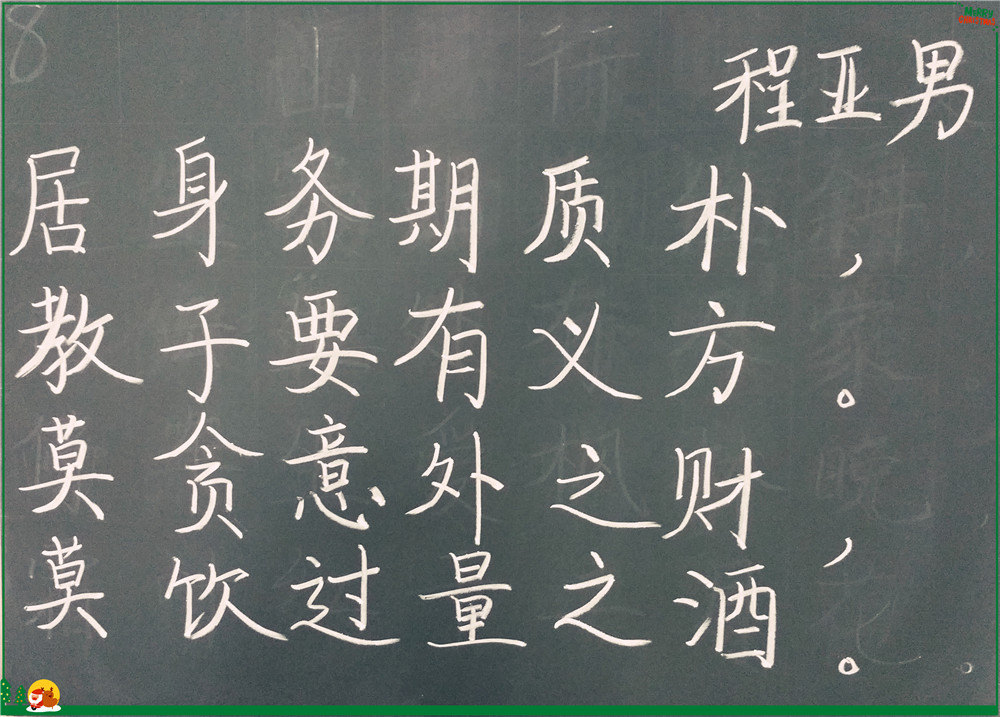 8
程亚男
居身务期质朴，
教子要有义方。
莫贪意外之财，
莫饮过量之酒。